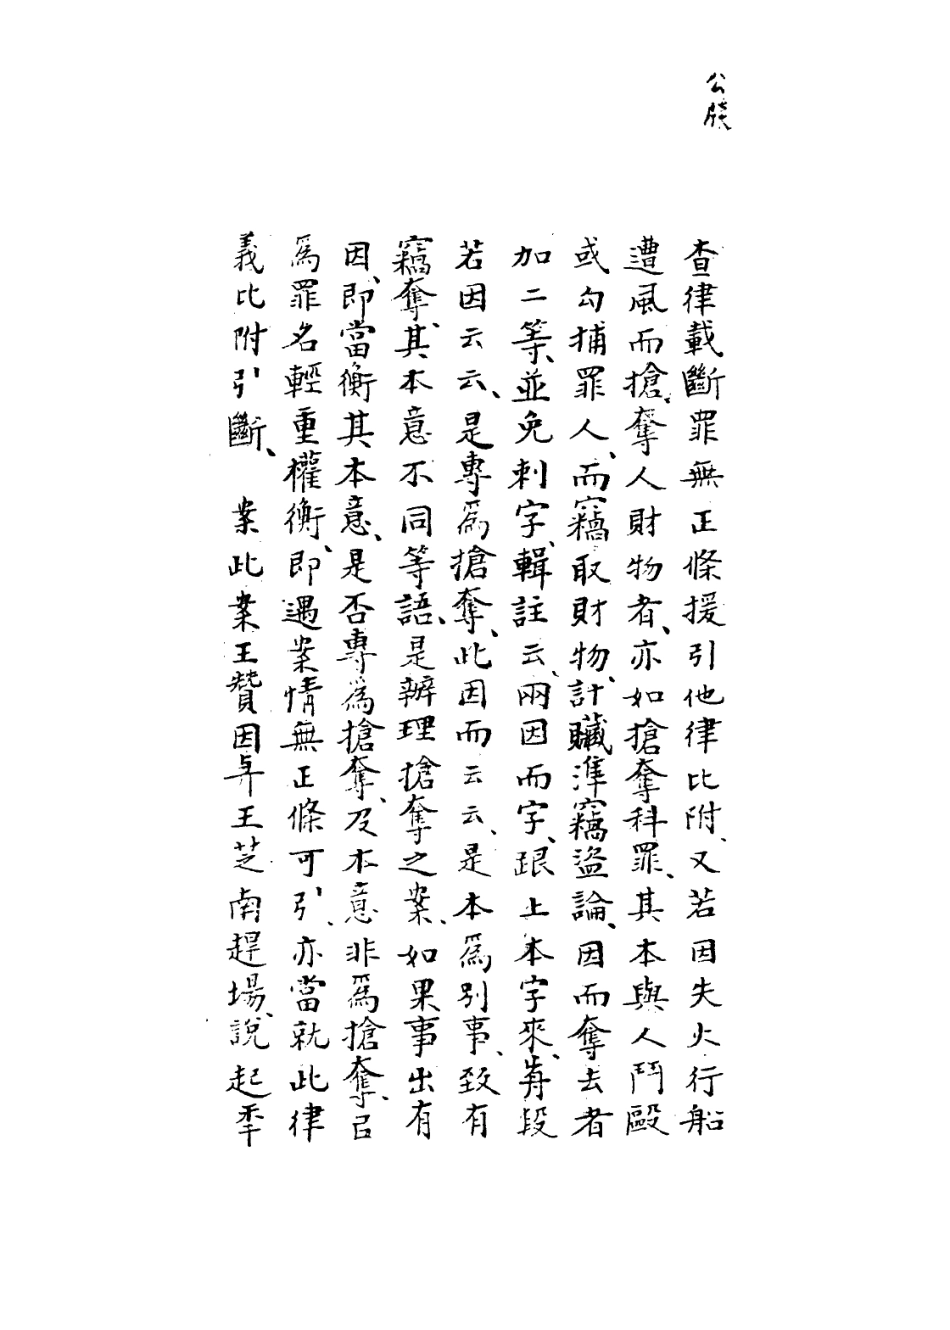 公牘
查律載斷罪無正條援引他律比附、又若因失火行船
遭風而搶奪人財物者、亦如搶奪科罪、其本與人鬥毆
或勾捕罪人、而竊取財物、計贓准竊盜論、因而奪去者
加二等、並免刺字、輯註云、兩因而字、跟上本字來、前段
若因云云、是專爲搶奪、此因而云云、是本爲別事、致有
竊奪、其本意不同等語、是辦理搶奪之案、如果事出有
因、即當衡其本意、是否專爲搶奪、及本意非爲搶奪、以
爲罪名輕重權衡、即遇案情無正條可引、亦當就此律
義比附引斷、 案此案王贊因與王芝南趕場、說起平